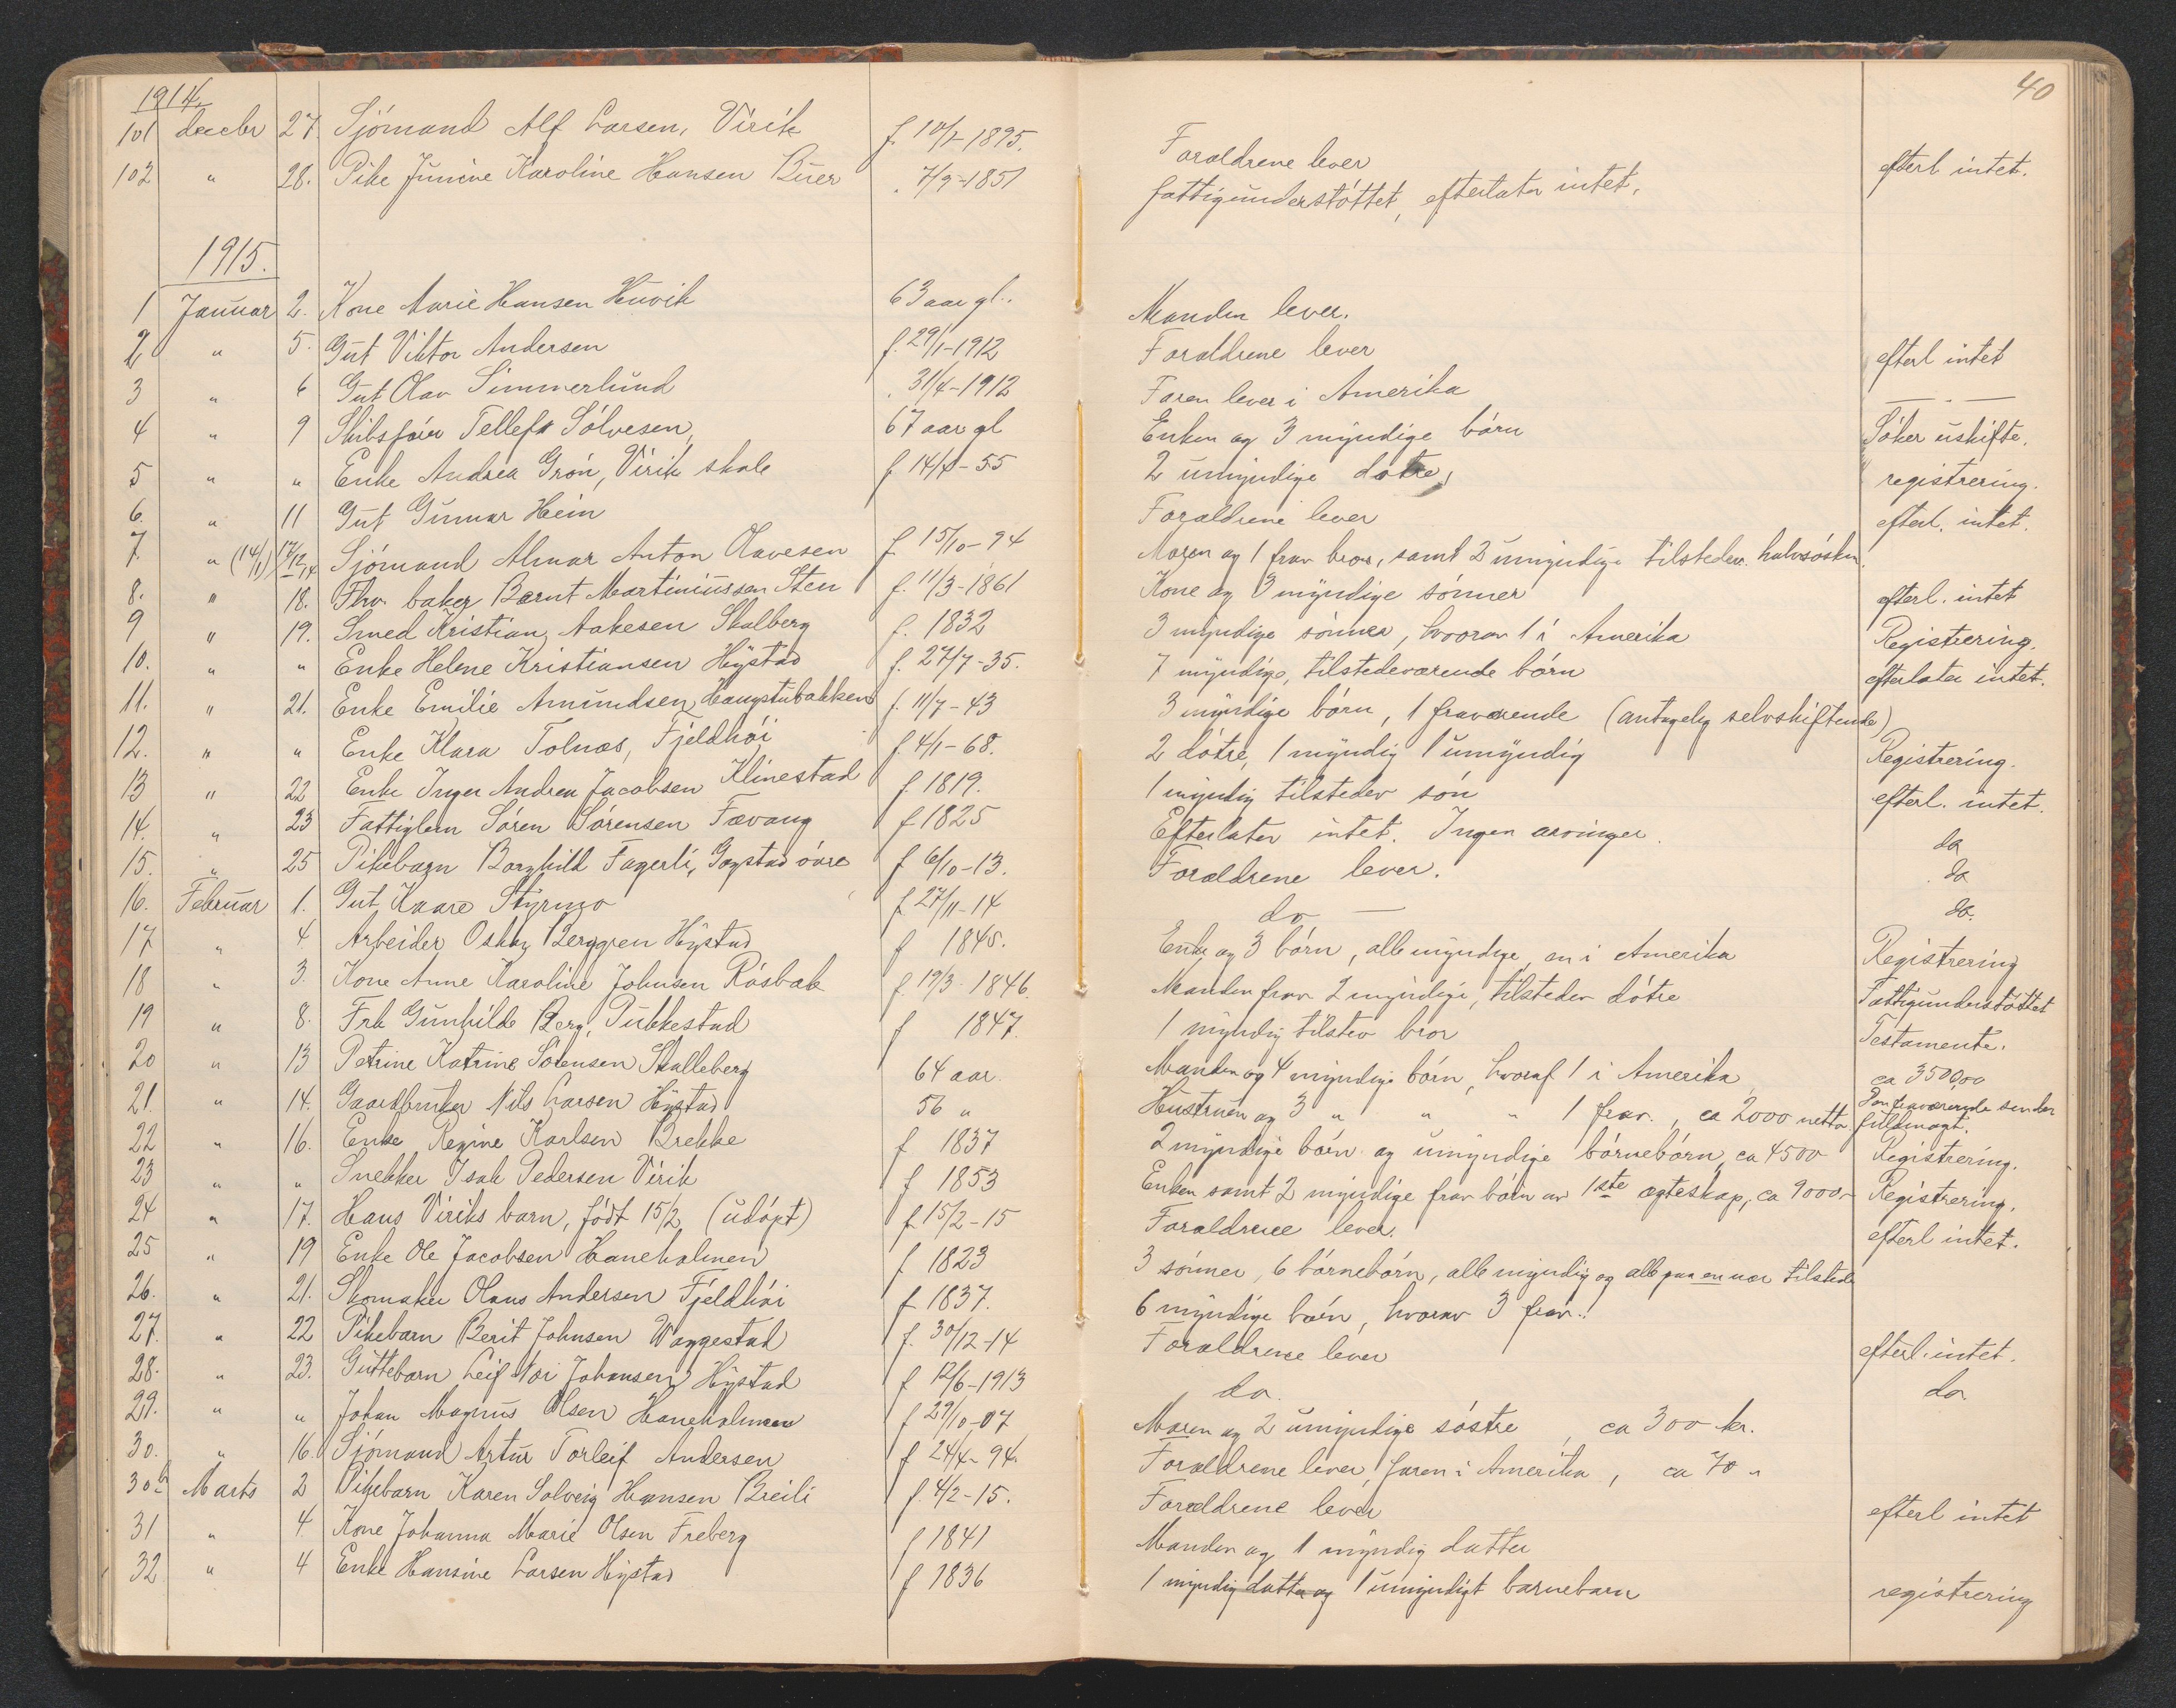 40
1914.
101 decbr 27. Sjómand Alf Larsen, Virik f. 10/1-1895. Foraldrene lever efterl intet.
102 " 28. Pike Junine Karoline Hansen Buer . 7/9-1851 fattigunderstóttet, efterlater intet.
1915.
1 Januar 2. Kone Marie Hansen Huvik 63 aar gl. Manden lever.
2 " 5. Gut Viktor Andersen f. 29/1-1912 Foraldrene lever efterl intet
3 " 6 Gut Olav Simmerlund . 31/4-1912 Faren lever i Amerika — " —
4 " 9 Skibsfórer Tellef Sólvesen, 67 aar gl Enken og 3 myndige bórn Sóker uskifte.
5 " " Enke Andrea Grón, Virik skole f 14/4-55 2 umyndige døtre, registrering.
6. " 11 Gut Gunnar Hein Foraldrene lever efterl. intet.
7. " (14/1) 17/12 14 Sjómand Almar Anton Olavesen f 15/10-94 Moren og 1 frav bror, samt 2 umyndige tilstedev. halvsósken.
8. " 18. Fhv. baker Bernt Martiniussen Sten f. 11/3-1861 Kone og 3 myndige sónner efterl. intet
9 " 19. Smed Kristian Aakesen Skalberg f. 1832 3 myndige sónner, hvorav 1 i Amerika Registrering.
10. " " Enke Helene Kristiansen Hystad f. 27/7-35. 7 myndige, tilstedeværende bórn efterlater intet.
11. " 21. Enke Emilie Amundsen, Haugstubakken f. 11/7-43 3 myndige bórn, 1 fraværende (antagelig selvskiftende)
12. " " Enke Klara Tolnæs, Fjeldhói f. 4/1-68. 2 dótre, 1 myndig 1 umyndig Registrering.
13 " 22 Enke Inger Andrea Jacobsen Klinestad f 1819. 1 myndig tilstedev són efterl. intet.
14. " 23 Fattiglem Sóren Sórensen Fevang f 1825 Efterlater intet. Ingen arvinger. do
15. " 25 Pikebarn Borghild Fagerli, Gogstad óvre f 6/10-13. Foraldrene lever. do
16. Februar 1. Gut Kaare Styrmo f. 27/11-14 do — do.
17 " 4. Arbeider Oskar Berggren Hystad f 1845. Enke og 3 bórn, alle myndige, en i Amerika Registrering
18 " 3. Kone Anne Karoline Johnsen Rósbak f. 19/3-1846. Manden frav 2 myndige, tilstedev dótre Fattigunderstóttet
19 " 8. Frk Gunhilde Berg, Pukkestad f 1847. 1 myndig tilstev bror Testamente.
20 " 13 Petrine Katrine Sórensen Skalleberg 64 aar. Manden og 4 myndige bórn, hvoraf 1 i Amerika ca 3500,00
21. " 14. Gaardbruker Nils Larsen Hystad 56 " Hustruen og 3 " " " 1 frav., ca 2000 netto. Den fraværende sender fuldmagt.
22 " 16. Enke Regine Karlsen Brekke f 1837 2 myndige bórn og umyndige bórnebórn ca 4500 Registrering.
23 " " Snekker Isak Pedersen Virik f 1853 Enken samt 2 myndige frav bórn av 1ste ægteskap, ca 9000.- Registrering.
24 " 17. Hans Viriks barn, fódt 15/2 (udópt) f. 15/2-15 Foraldrene lever. efterl intet.
25 " 19 Enke Ole Jacobsen Haneholmen f 1823 3 sónner, 6 bórnebórn, alle myndig og alle paa en nær tilstede
26. " 21. Skomaker Olaus Andersen Fjeldhói f 1837. 6 myndige bórn, hvorav 3 frav.!
27. " 22 Pikebarn Berit Johnsen Waggestad f. 30/12-14 Foraldrene lever efterl. intet.
28. " 23. Guttebarn Leif Johansen Hystad f 12/6-1913 do. do.
29. " " Johan Magnus Olsen Haneholmen f 29/10-07 Moren og 2 umyndige sóstre, ca 300 kr.
30. " 16. Sjómand Artur Torleif Andersen f 24/4-94. Foraldrene lever, faren i Amerika, ca 70 "
30b Marts 2 Pikebarn Karen Solveig Hansen Breili f. 4/2-15. Foraldrene lever efterl intet
31 " 4. Kone Johanna Marie Olsen Freberg f 1841 Manden og 1 myndig datter
32 " 4 Enke Hansine Larsen Hystad f 1836 1 myndig datter og 1 umyndigt barnebarn registrering